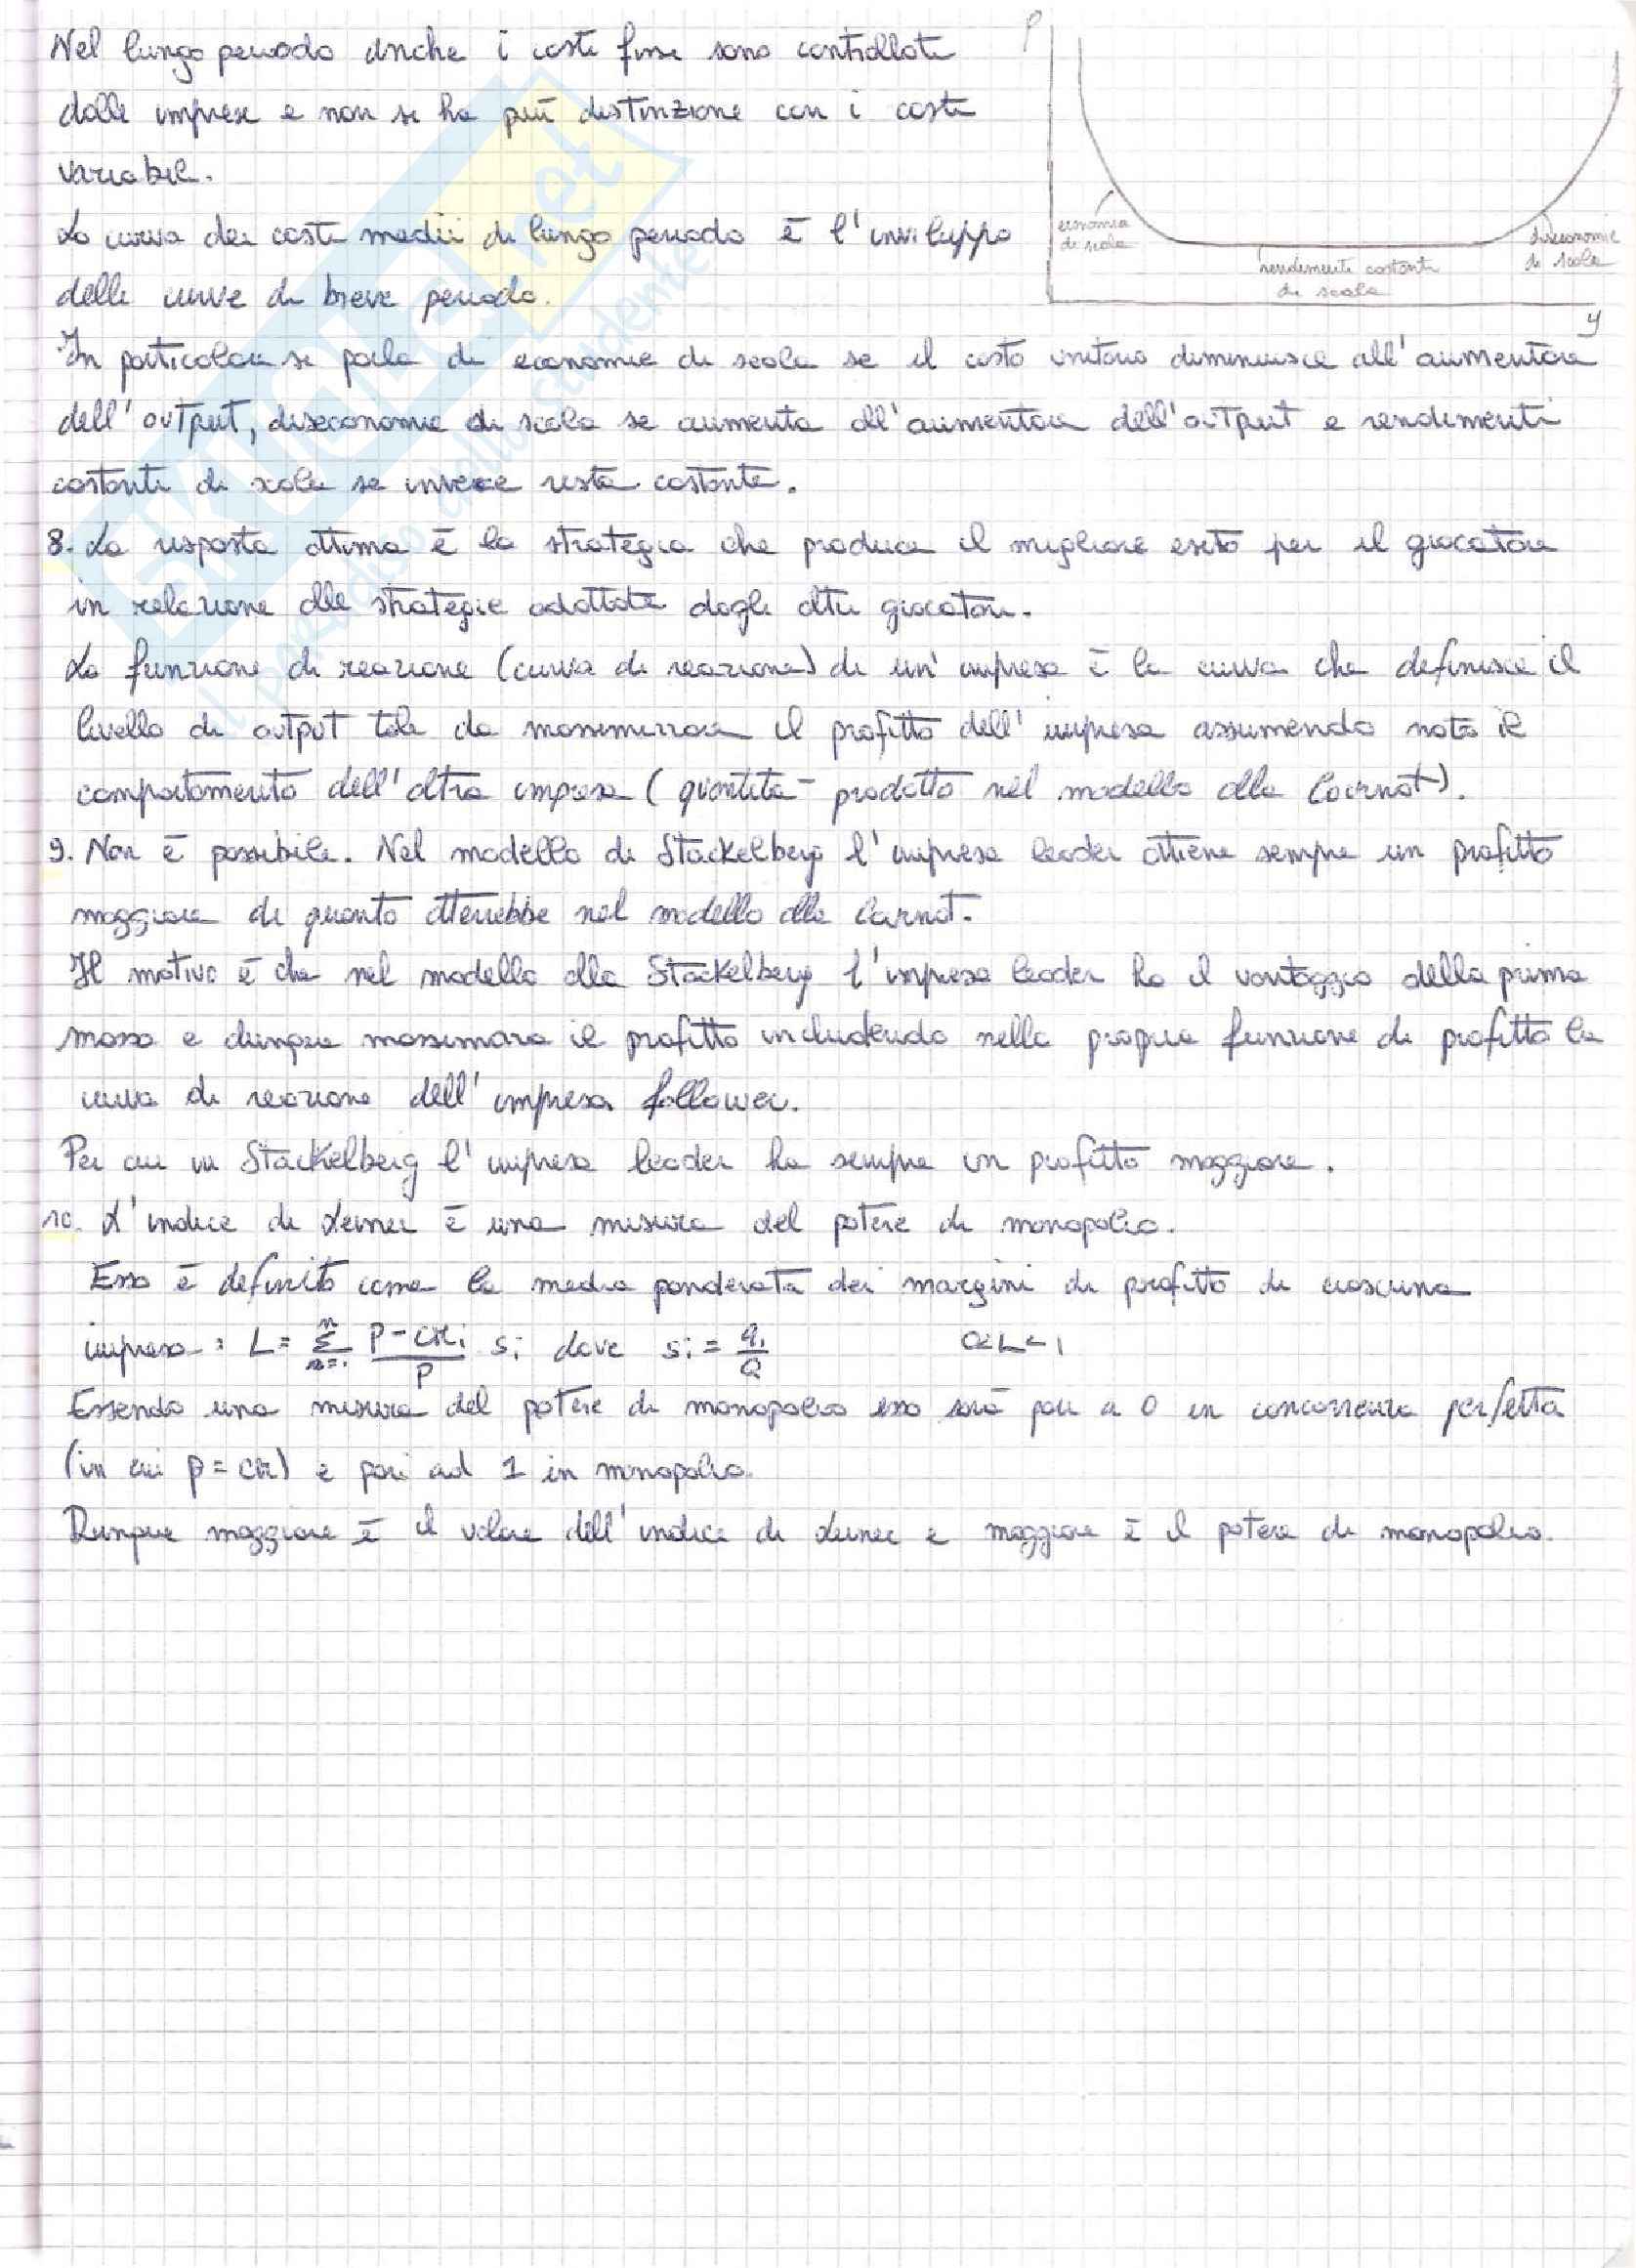 Nel lungo periodo anche i costi fissi sono controllati
dalle imprese e non si ha più distinzione con i costi
variabili.
La curva dei costi medii di lungo periodo è l'inviluppo
delle curve di breve periodo.
P
economia
di scala
rendimenti costanti
di scala
diseconomie
di scala
y
In particolare si parla di economie di scala se il costo unitario diminuisce all'aumentare
dell'output, diseconomie di scala se aumenta all'aumentare dell'output e rendimenti
costanti di scala se invece resta costante.
8. La risposta ottima è la strategia che produce il migliore esito per il giocatore
in relazione alle strategie adottate dagli altri giocatori.
La funzione di reazione (curva di reazione) di un'impresa è la curva che definisce il
livello di output tale da massimizzare il profitto dell'impresa assumendo noto il
comportamento dell'altra impresa (quantità prodotta nel modello alla Cournot).
9. Non è possibile. Nel modello di Stackelberg l'impresa leader ottiene sempre un profitto
maggiore di quanto otterrebbe nel modello alla Carnot.
Il motivo è che nel modello alla Stackelberg l'impresa leader ha il vantaggio della prima
mossa e dunque massimizza il profitto includendo nella propria funzione di profitto la
curva di reazione dell'impresa follower.
Per cui in Stackelberg l'impresa leader ha sempre un profitto maggiore.
10. L'indice di Lerner è una misura del potere di monopolio.
Esso è definito come la media ponderata dei margini di profitto di ciascuna
impresa: L = Σ P - CM_i / P s_i dove s_i = q_i / Q 0≤L≤1
Essendo una misura del potere di monopolio esso sarà pari a 0 in concorrenza perfetta
(in cui p = CM) e pari ad 1 in monopolio.
Dunque maggiore è il valore dell'indice di Lerner e maggiore è il potere di monopolio.
SKUOLA.net